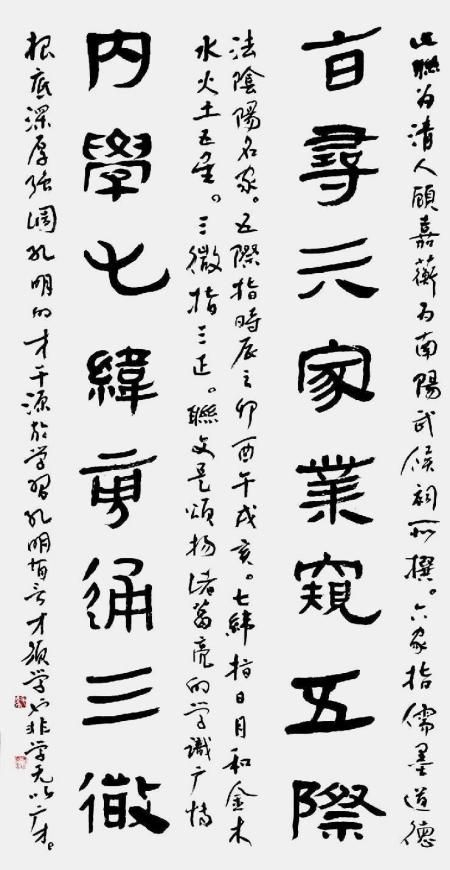 此聯为清人顾嘉蘅为南陽武侯祠所撰。六家指儒墨道德
旨尋六家業窺五際
法陰陽名家。五際指時辰之卯酉午戌亥。七緯指日月和金木
水火土五星。三微指三正。聯文是頌扬诸葛亮的学識广博
内學七緯旁通三微
根底深厚强调孔明的才干源於学習孔明有言才须学也非学无以广才。